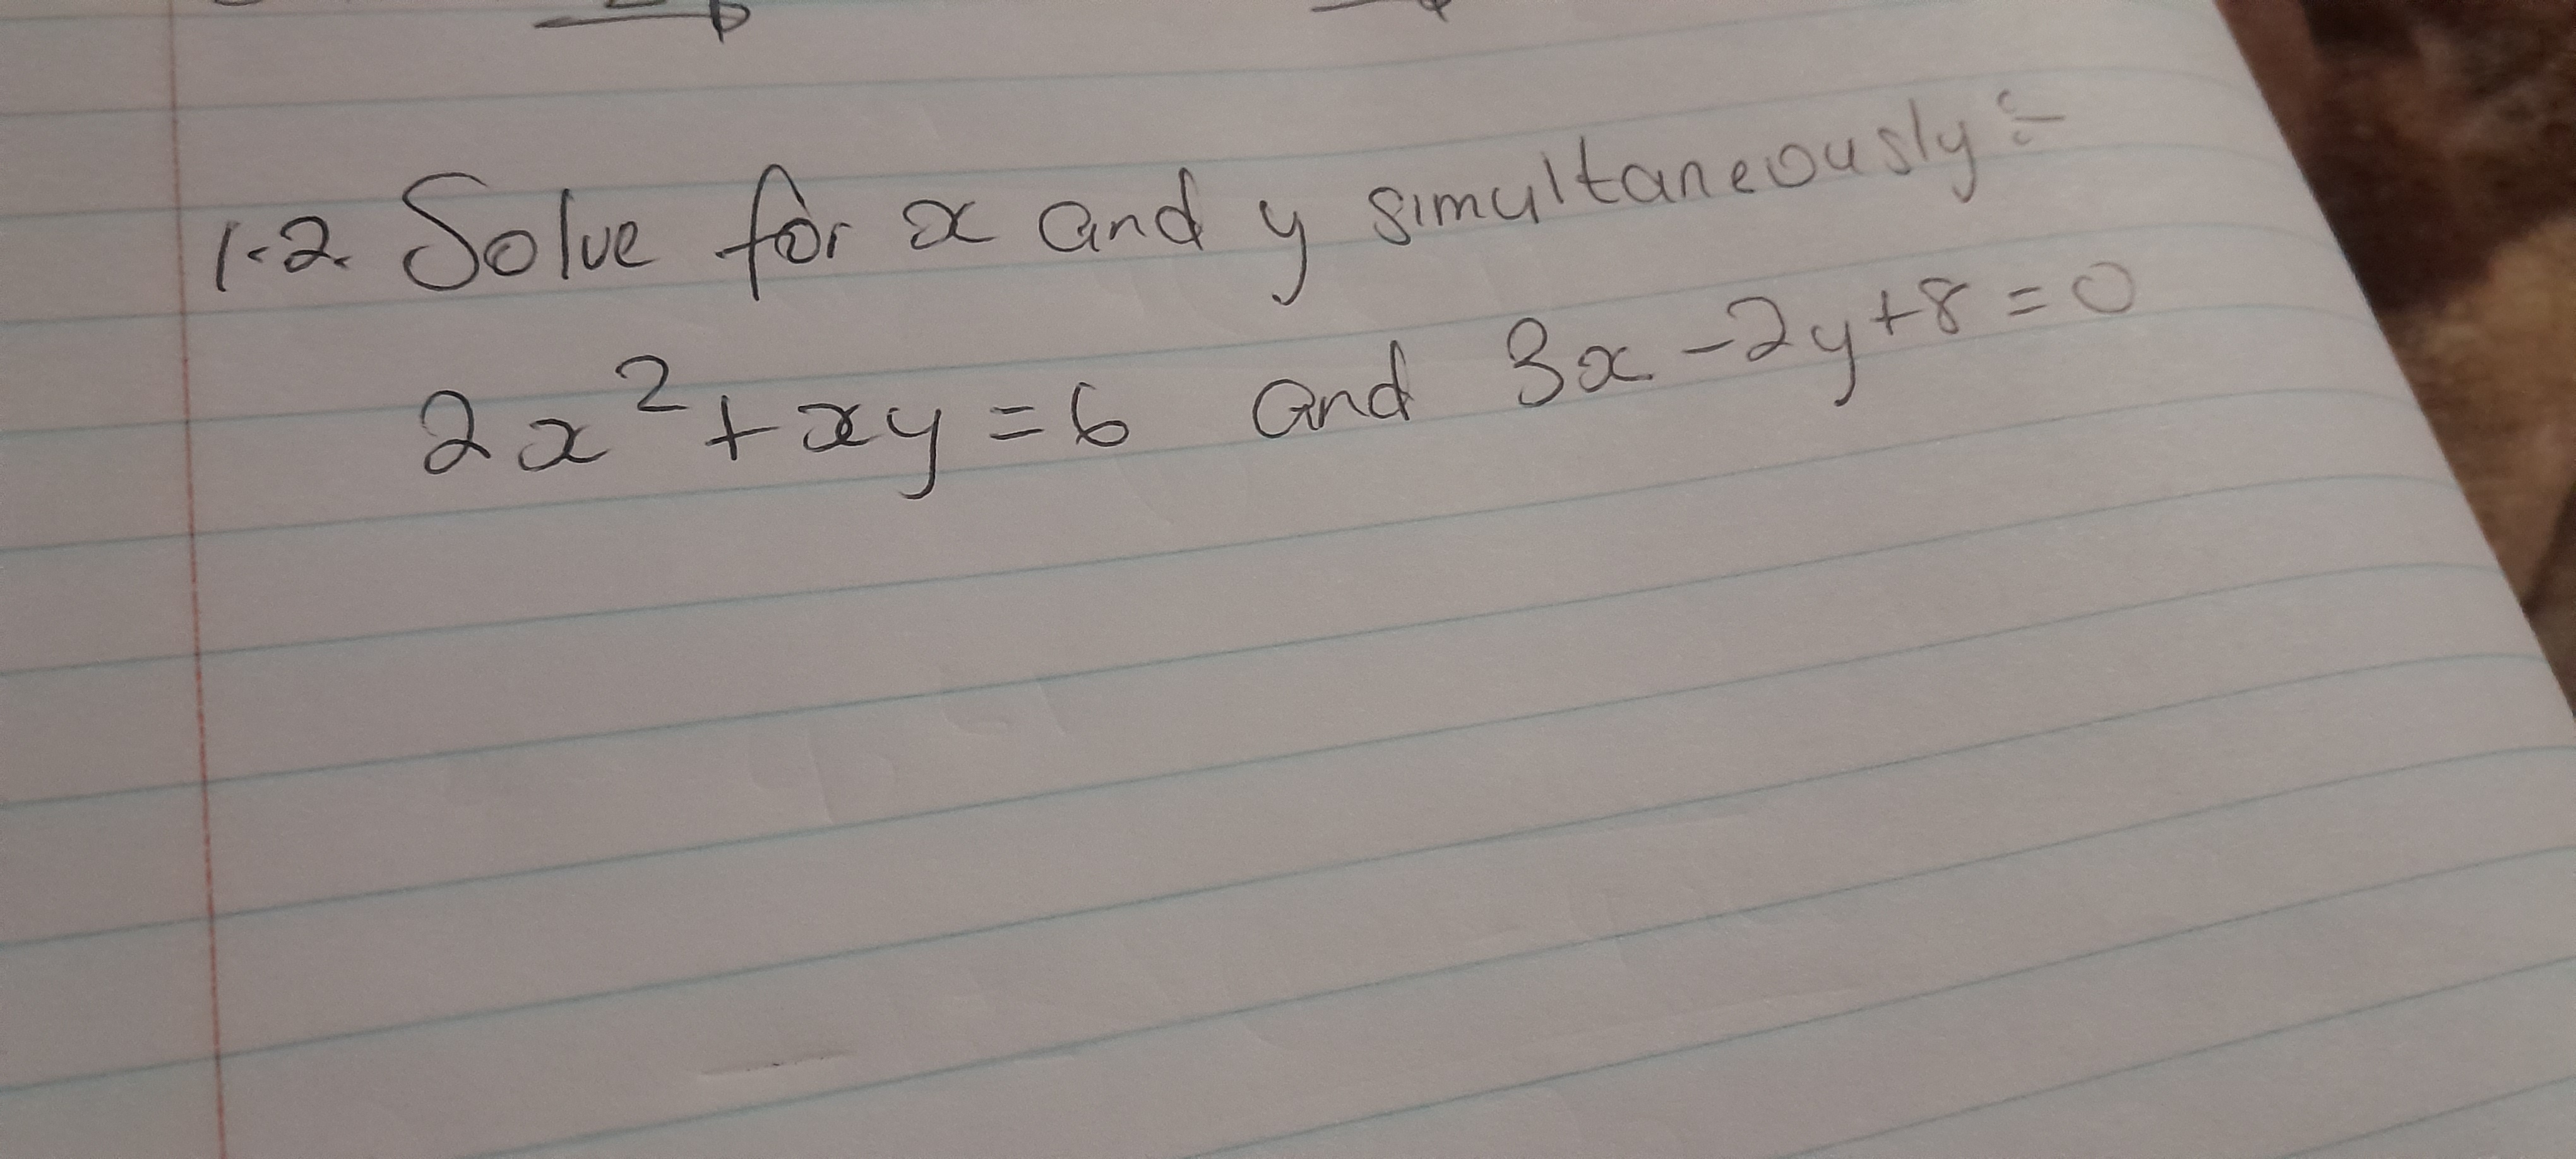 1.2. Solve for x and y simultaneously:-
2x²+xy=6 and 3x-2y+8=0